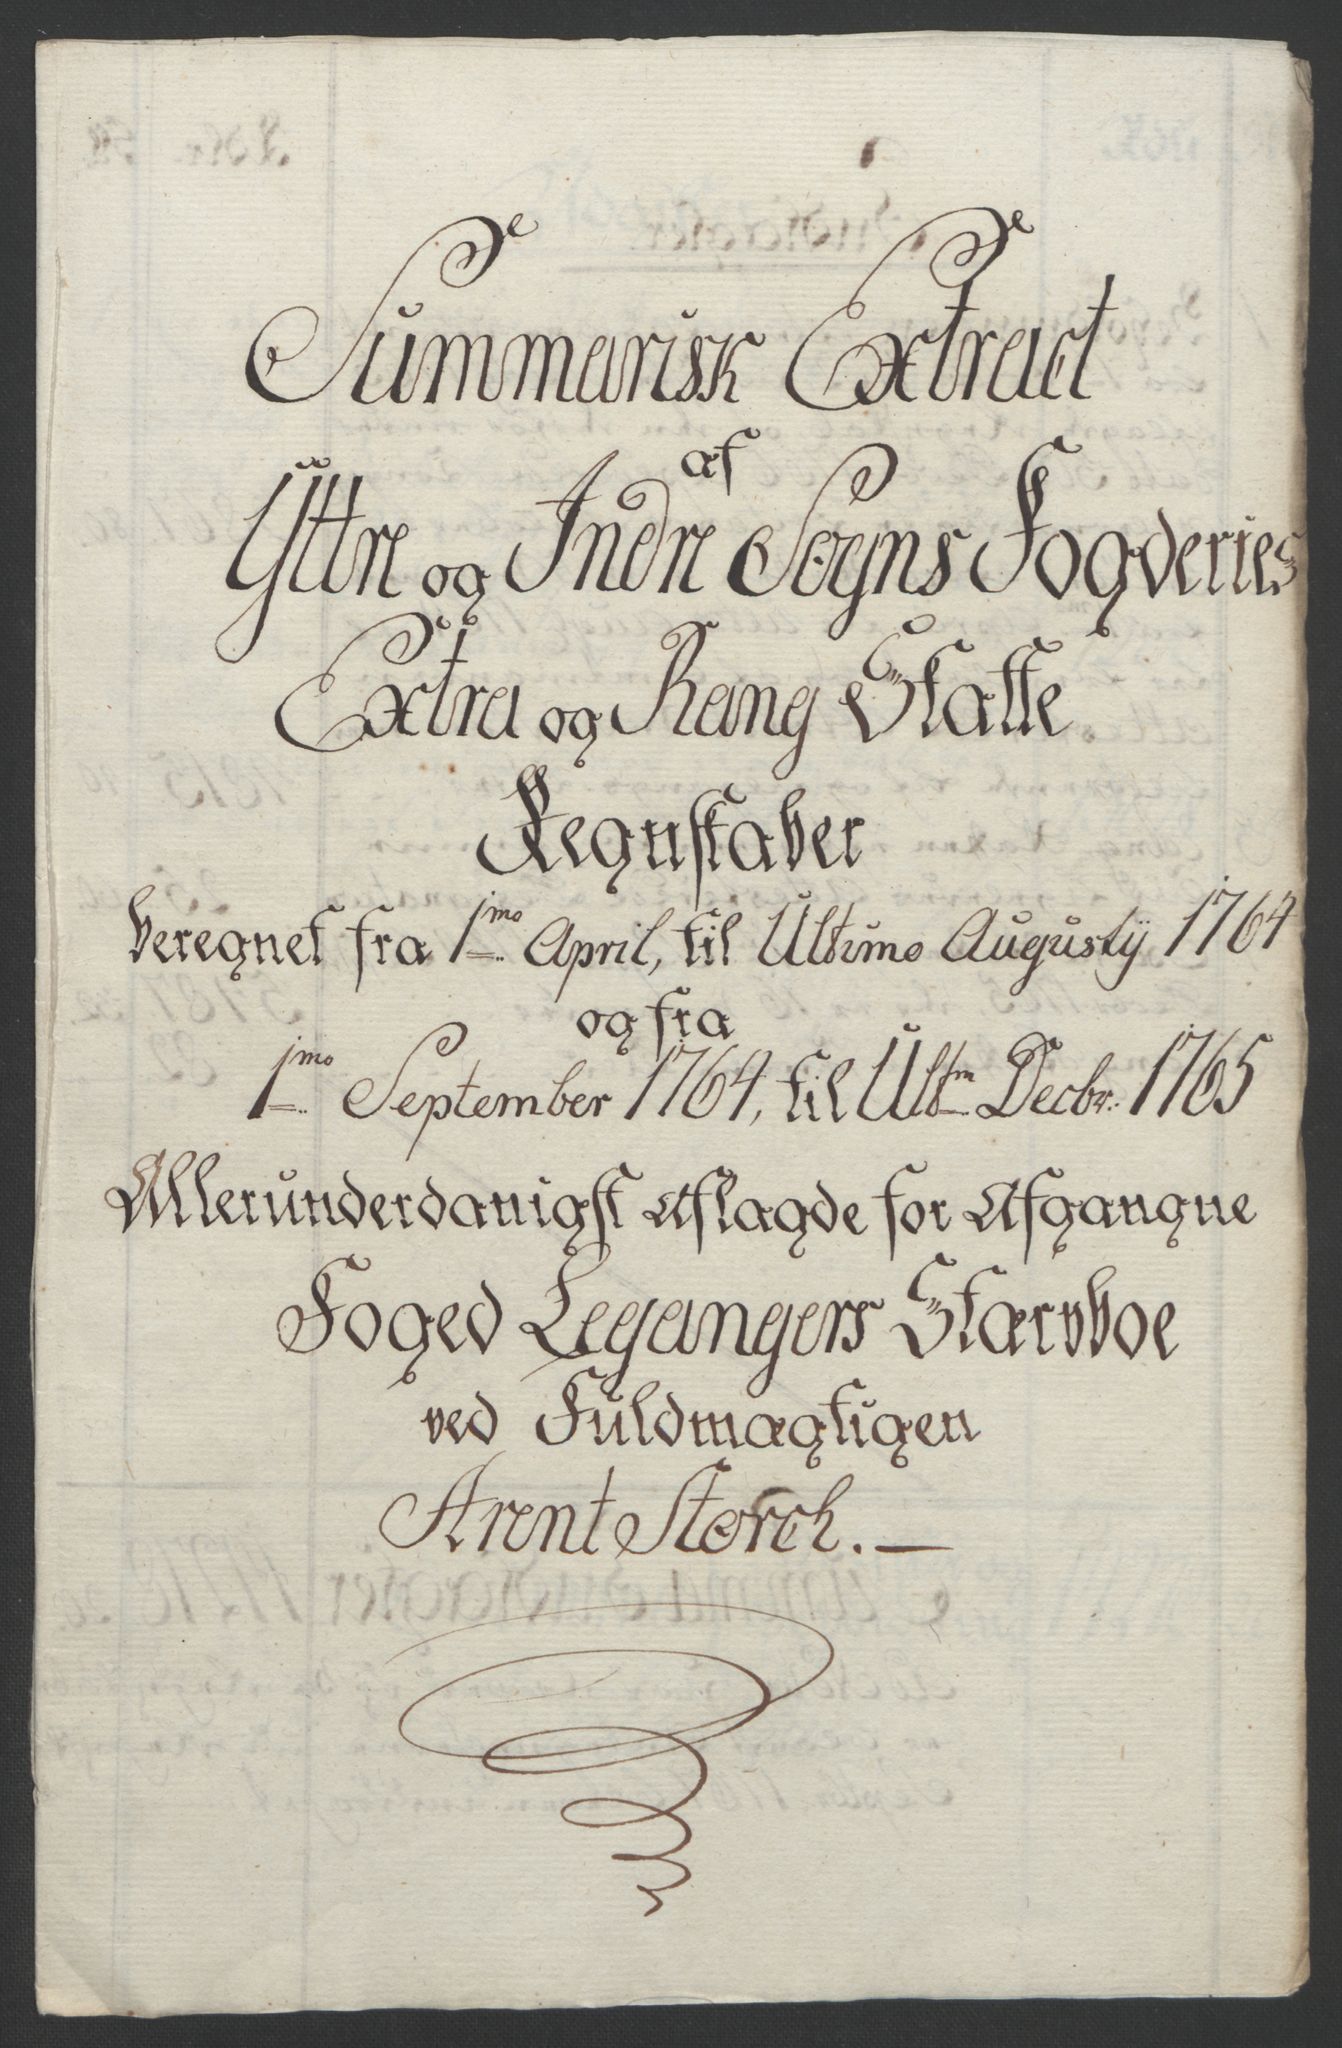 Summarisk Extract
af
Yttre og Indre Sogns Fogderies
Extra og Rang Skatte
Regnskaber
beregnet fra 1mo April, til Ultimo Augustÿ 1764
og fra
1mo September 1764, til Ultm Decbr. 1765
Allerunderdanigst Aflagde for Afgangne
Foged Legangers Stærvboe
ved Fuldmægtigen
Arent Storch.